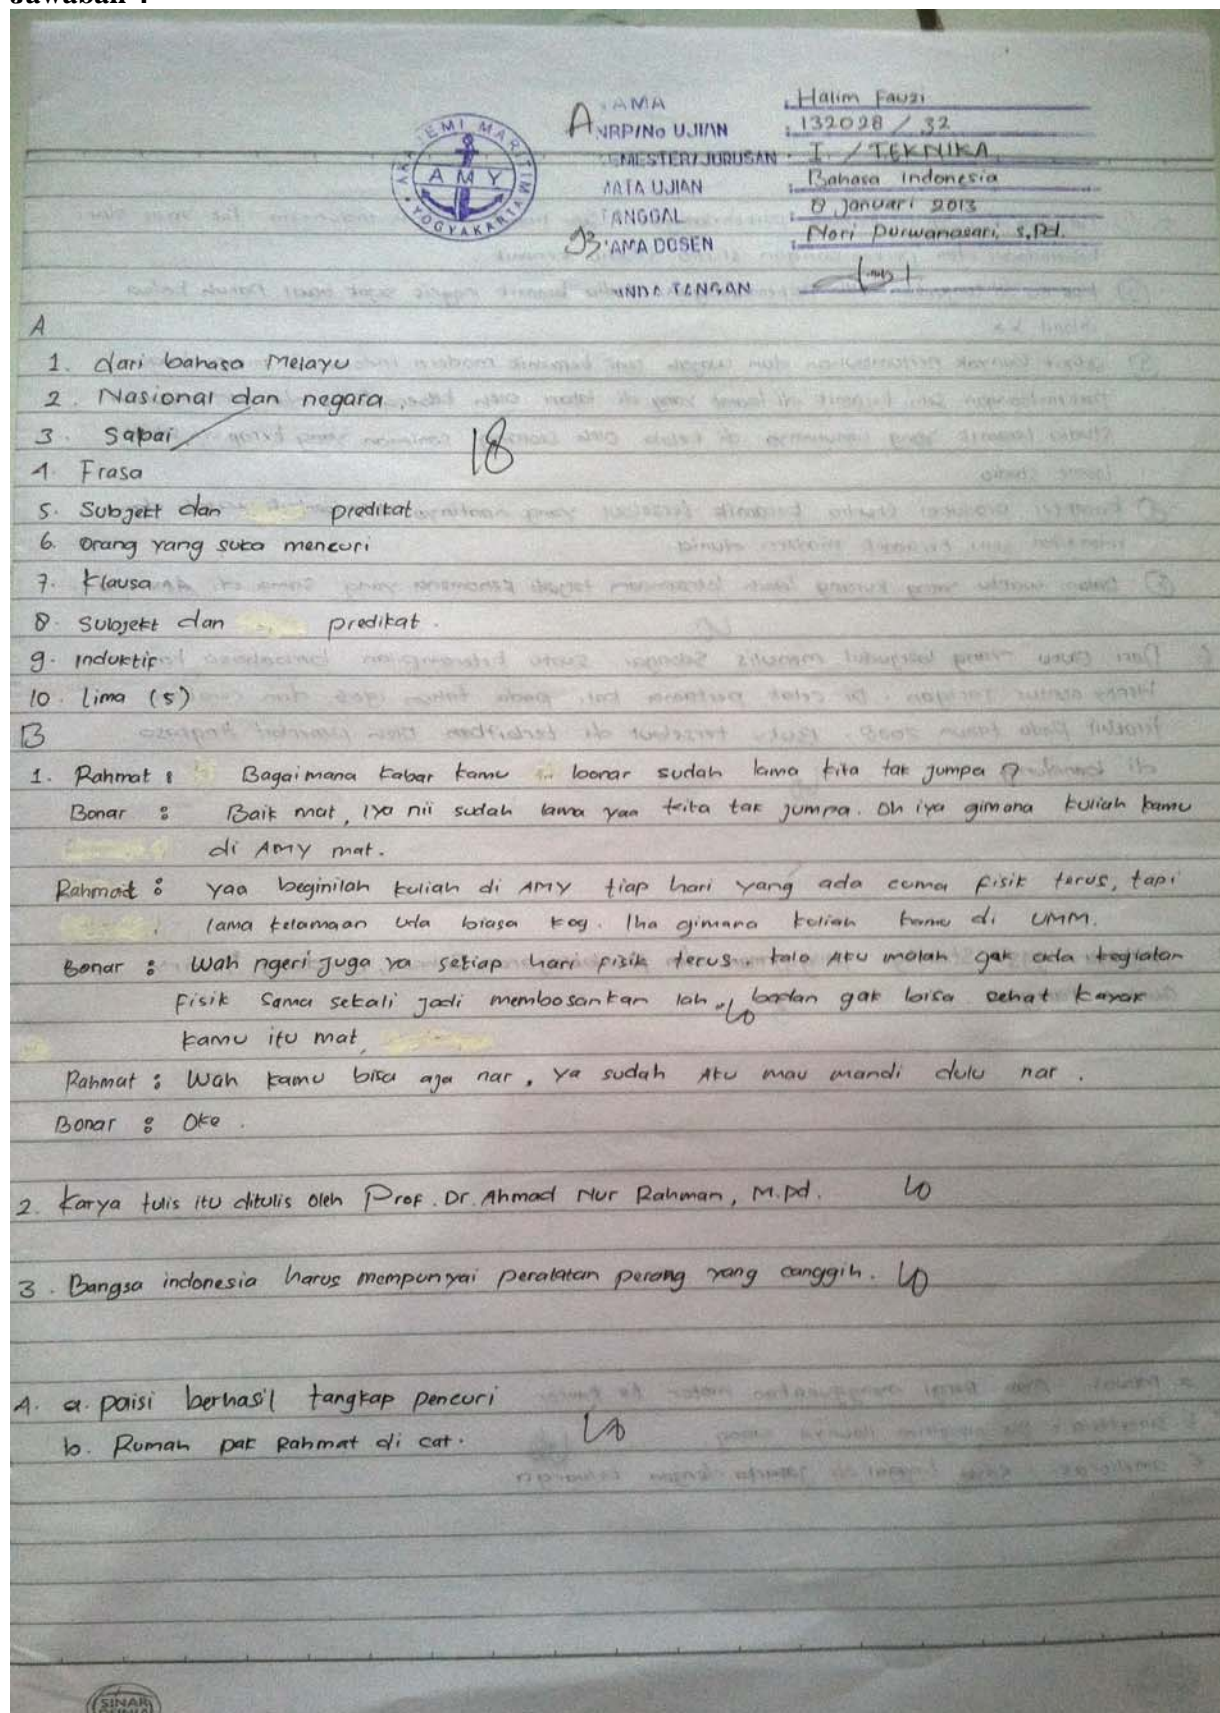 Jawaban 4
AKADEMI MARITIM YOGYAKARTA
AMY
A
NAMA : Halim Fauzi
NRP/No UJIAN : 132028 / 32
SEMESTER/JURUSAN : I / TEKNIKA
MATA UJIAN : Bahasa Indonesia
TANGGAL : 8 Januari 2013
93
NAMA DOSEN : Nori Purwanasari, S.Pd.
TANDA TANGAN
A
1. dari bahasa Melayu
2. Nasional dan negara.
3. Sabai
18
4. Frasa
5. Subjekt dan predikat
6. Orang yang suka mencuri
7. Klausa
8. Subjekt dan predikat.
9. induktif
10. Lima (5)
B
1. Rahmat : Bagaimana kabar kamu bonar sudah lama kita tak jumpa ?
Bonar : Baik mat, iya nii sudah lama yaa kita tak jumpa. Oh iya gimana kuliah kamu
di AMY mat.
Rahmad : yaa beginilah kuliah di AMY tiap hari yang ada cuma fisik terus, tapi
lama kelamaan uda biasa kog. lha gimana kuliah kamu di UMM.
Bonar : Wah ngeri juga ya setiap hari fisik terus. kalo Aku malah gak ada kegiatan
Fisik sama sekali jadi membosankan lah, badan gak bisa sehat kayak
10
kamu itu mat
Rahmat : Wah kamu bisa aja nar, ya sudah Aku mau mandi dulu nar.
Bonar : Oke.
2. Karya tulis itu ditulis oleh Prof. Dr. Ahmad Nur Rahman, M.pd. 10
3. Bangsa indonesia harus mempunyai peralatan perang yang canggih. 10
4. a. polisi berhasil tangkap pencuri
b. Rumah pak Rahmat di cat. 10
SINAR
DUNIA